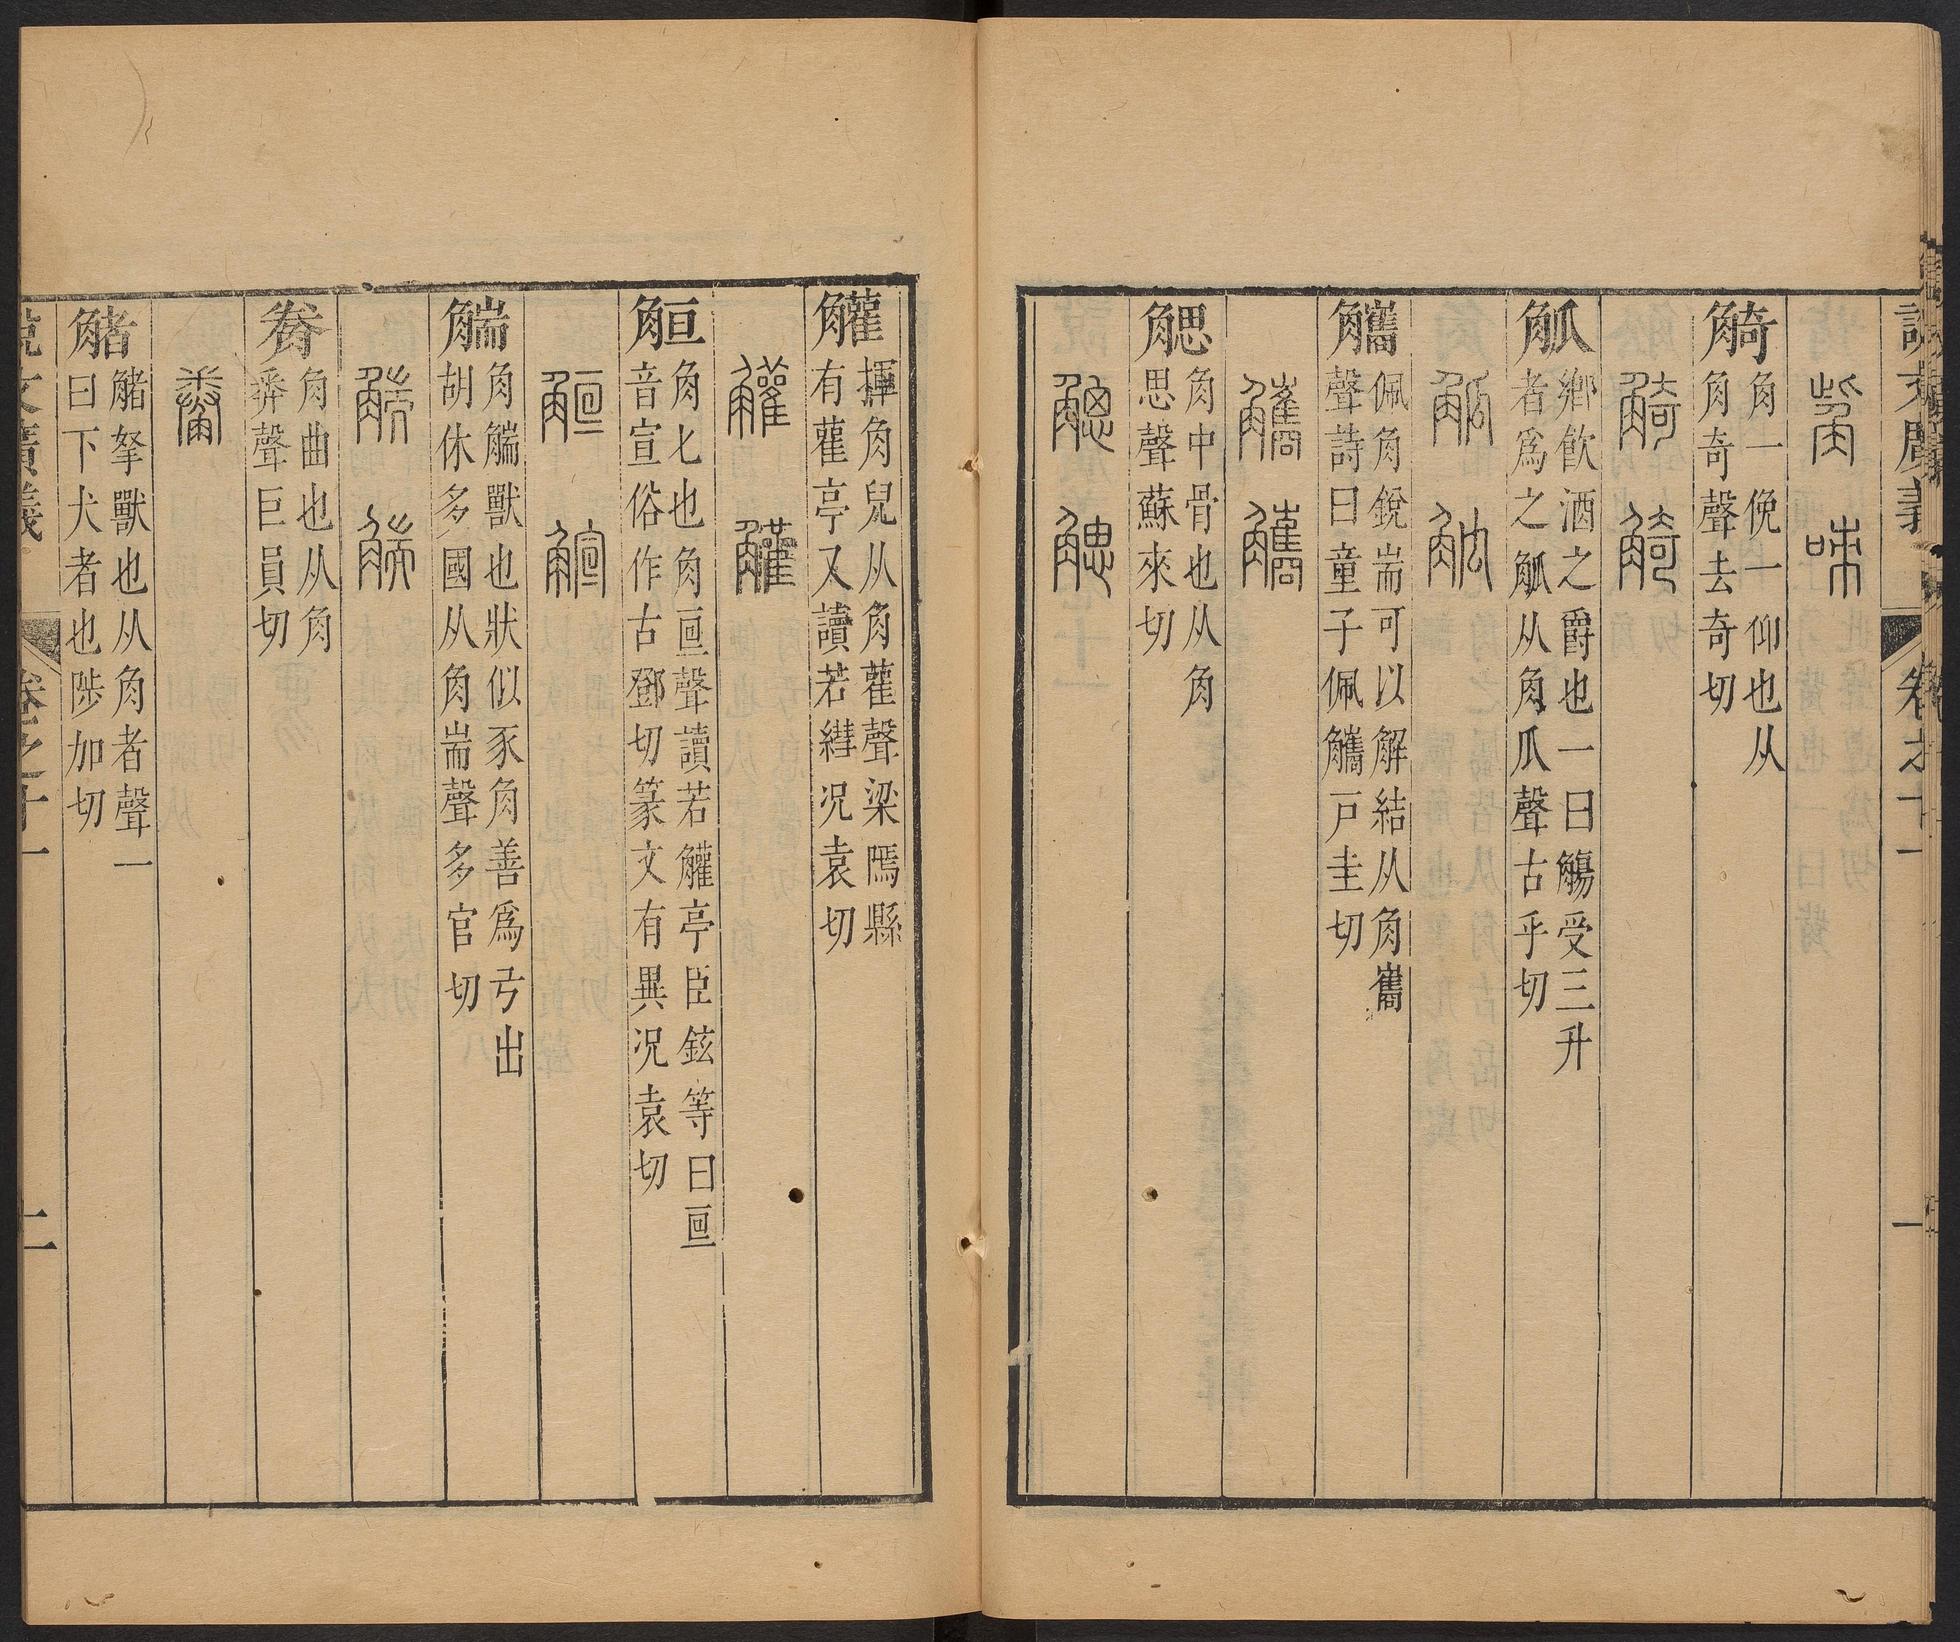 說文廣義
卷之十一
一
觭
角一俛一仰也从
角奇聲去奇切
觚
鄉飲酒之爵也一曰觴受三升
者爲之觚从角瓜聲古乎切
觿
佩角銳耑可以解結从角巂
聲詩曰童子佩觿戸圭切
䚡
角中骨也从角
思聲蘇來切
䚭
揮角皃从角雚聲梁隖縣
有雚亭又讀若繕况袁切
䚙
角匕也角亘聲讀若䚭亭臣鉉等曰亘
音宣俗作古鄧切篆文有異况袁切
觽
角觽獸也狀似豕角善爲弓出
胡休多國从角耑聲多官切
觠
角曲也从角
𢍏聲巨員切
觰
觰拏獸也从角者聲一
曰下犬者也陟加切
說文廣義
卷之十一
二